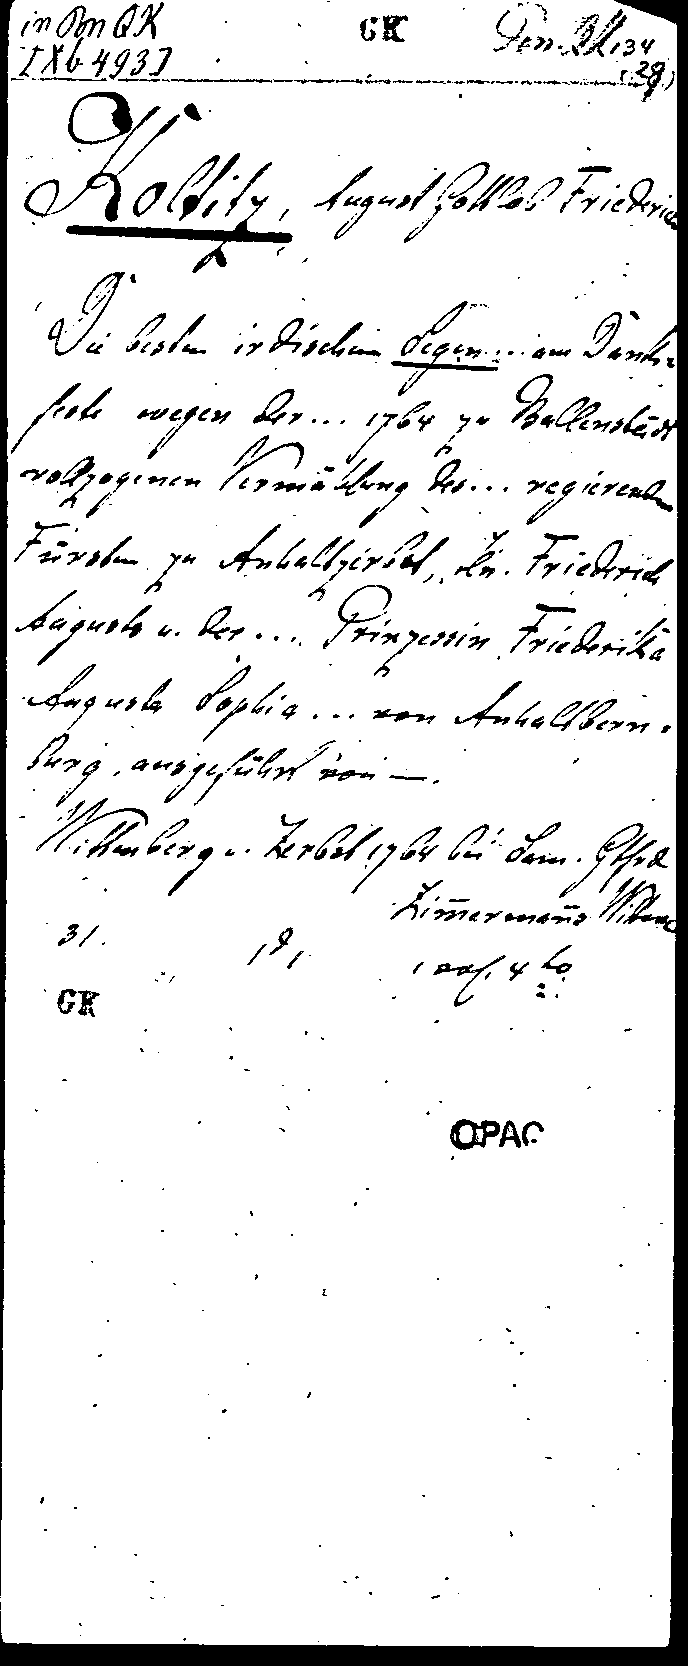 in Pon QK GK Pon. Zk, 34
[Xb 493] (28)
Koltitz, August Gottlob Friederich
Die besten irdischen Segen ... am Dank-
feste wegen der ... 1764 zu Ballenstädt
vollzogenen Vermählung des ... regierenden
Fürsten zu Anhaltzerbst, Hn. Friederich
Augusts u. der ... Prinzessin Friederika
Augusta Sophia ... von Anhaltbern-
burg, ausgeführt von —.
Wittenberg u. Zerbst 1764 bei Sam. Gtfrd
Zimermans Witwe
31. 4to
GK
OPAC